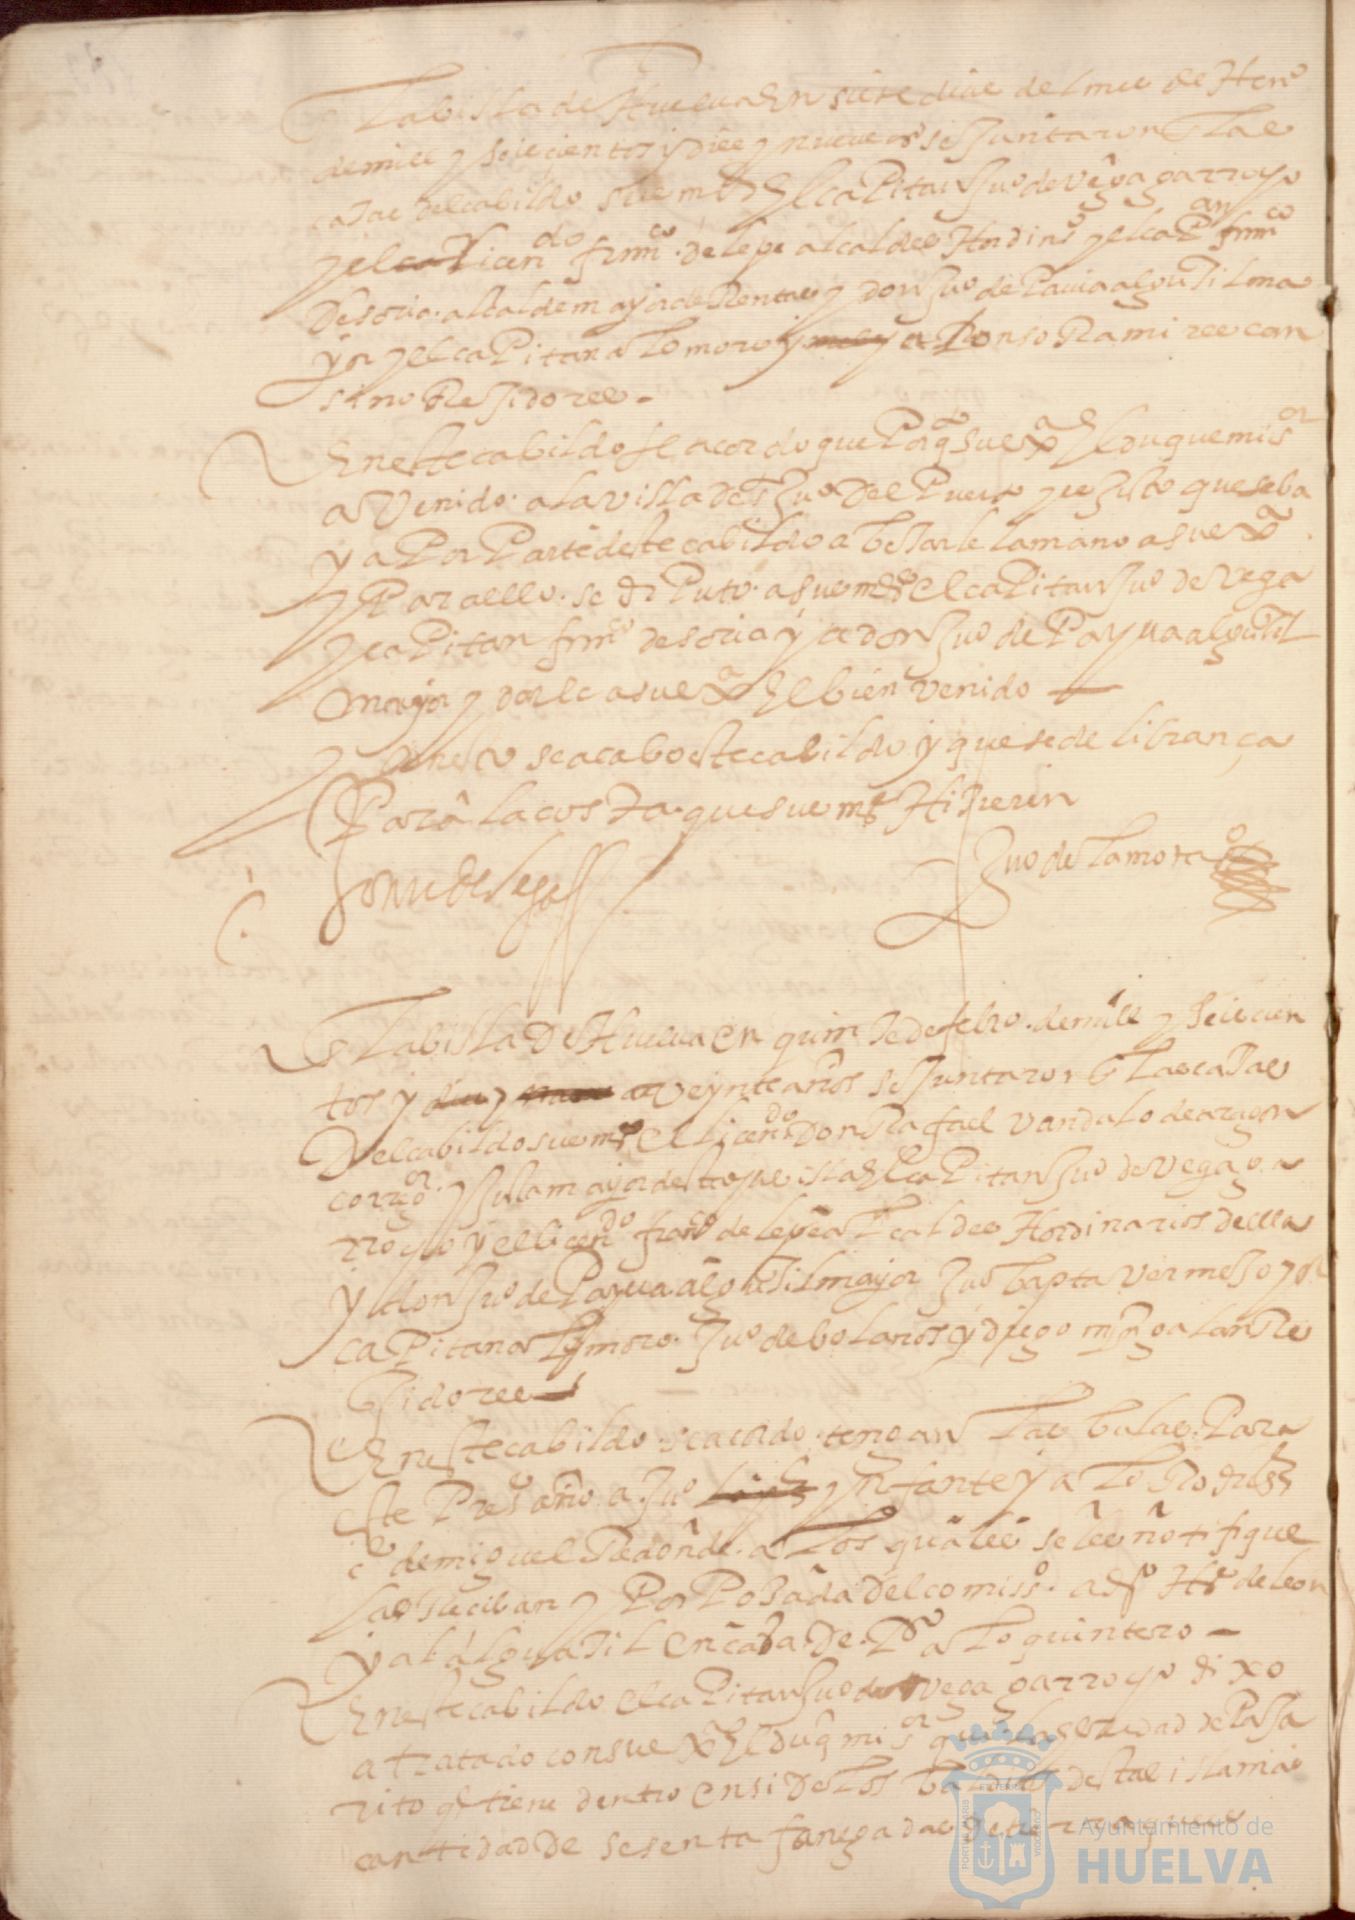 En la billa de Huelva En siete dias del mes de Hen°
de mill y seiscientos y diez y nueve as se Juntaron En las
casas del cabildo su md El capitan Ju° de vega garrocho
y el licendo franco de lepe alcaldes Hordin°s y el capan franco
de soria alcalde mayor de Rentas y don Ju° de Pavia alguasil ma
yor y el capitan a° lo moro y Alonso Ramirez can
sino Regidores -
En este cabildo se acordo que Porqto su exa El duque mi sor
a venido a la villa de s Ju° del Puerto y es Justo que se ba
ya por Parte deste cabildo a besarle la mano a su exa
y Para ello se diputo a su md el capitan Ju° de vega
y capitan franco de soria y a don Ju° de Payua alguasil
mayor y darle a su exa El bien venido
y con esto se acabo este cabildo y que se de librança
Para la costa que su md Hisieren
Ju° de la mora
En la billa De Huelva En quinse de feb° de mill y seiscien
tos y veynte años se Juntaron En las casas
Del cabildo su md El licendo Don Rafael vandalo de aragon
corregor y Justa mayor desta villa El capitan Ju° de vega ga
rrocho y el licendo franco de lepe alcaldes Hordinarios della
y don Ju° de Payua alguasil mayor Ju° bapta vermejo y el
capitan a° lo moro Ju° de bolaños y diego mrn galan Re
gidores
En este cabildo se acordo tengan las bulas Para
este Preste año a Ju° ynfante y a
de miguel Redonde a los quales se les notifique
las Reciban y Por Posada del comiss° a d° Hr de leon
y al alguasil En casa de P° a° lo quintero -
En este cabildo El capitan Ju° de vega garrocho dixo
a tratado con su exa El duq mi sor que la eredad de Pasa
rito q tiene dentro en si De los baldios desta villa mas
cantidad De sesenta fanegadas de tierra y que es
Ayuntamiento de
HUELVA